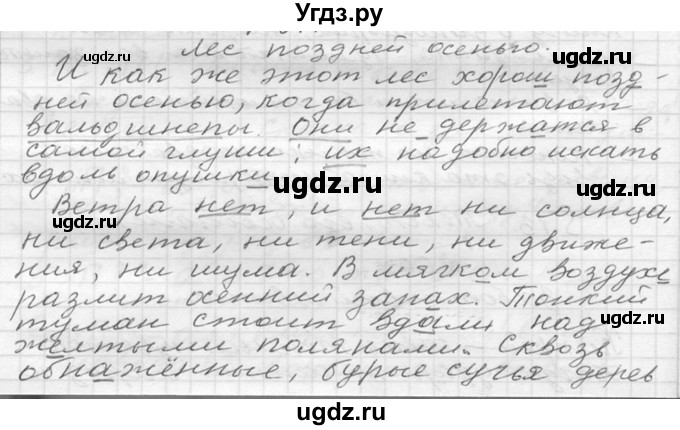 Угдз.ру
Лес поздней осенью.
И как же этот лес хорош позд-
ней осенью, когда прилетают
вальдшнепы. Они не держатся в
самой глуши; их надобно искать
вдоль опушки.
Ветра нет, и нет ни солнца,
ни света, ни тени, ни движе-
ния, ни шума. В мягком воздухе
разлит осенний запах. Тонкий
туман стоит вдали над
желтыми полянами. Сквозь
обнажённые, бурые сучья дерев
ugdz.ru
ugdz.ru
ugdz.ru
ugdz.ru
ugdz.ru
ugdz.ru
ugdz.ru
ugdz.ru
ugdz.ru